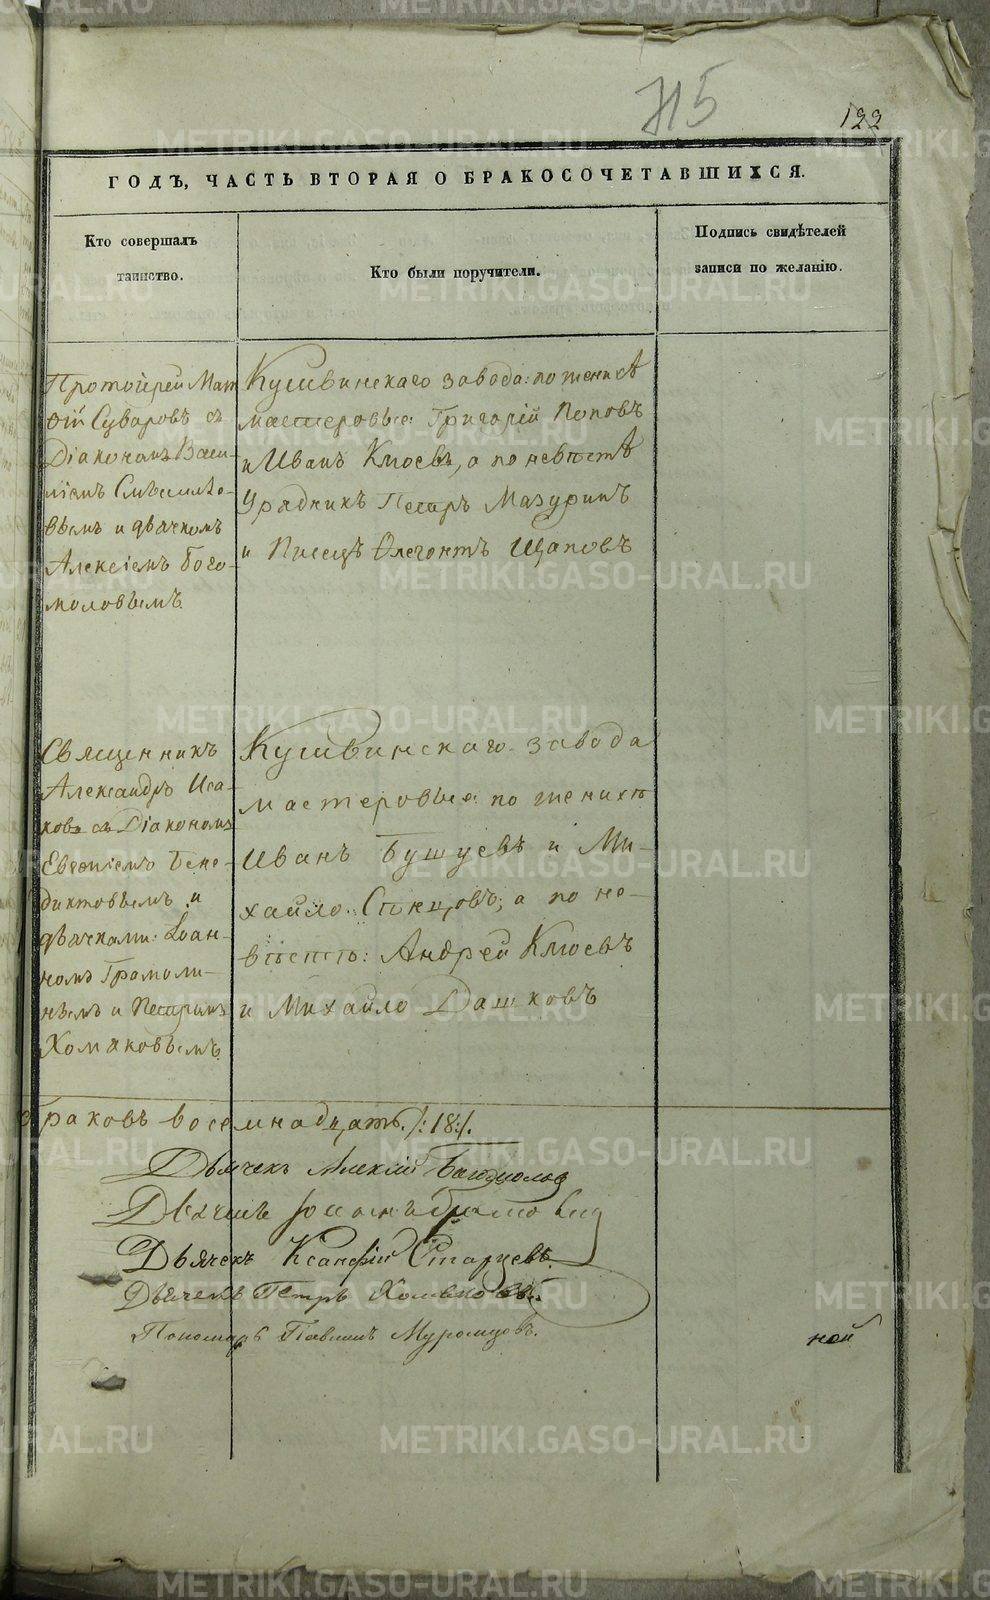 715
122
ГОДЪ, ЧАСТЬ ВТОРАЯ О БРАКОСОЧЕТАВШИХСЯ.
Кто совершалъ
таинство.
Кто были поручители.
Подпись свидѣтелей
записи по желанію.
Протоіерей Мат
ѳій Суваровъ съ
Діакономъ Васи-
ліемъ
вымъ и дьячкомъ
Алексіемъ Бого-
моловымъ
Кушвинскаго завода: по женихѣ
мастеровые: Григорій Поповъ
и Иванъ Клюевъ, а по невѣстѣ
Урядникъ Петръ Мазуринъ
и Писецъ Ѳлегонтъ Щаповъ
Священникъ
Александръ Иса-
ковъ съ Діакономъ
Евѳиміемъ Бене-
диктовымъ и
дьячками: Іоан-
номъ Грамоли-
нымъ и Петромъ
Хомяковымъ
Кушвинскаго завода
мастеровые: по женихѣ
Иванъ Бушуевъ и Ми-
хайло Сѣнцовъ, а по не-
вѣстѣ: Андрей Клюевъ
и Михайло Дашковъ
браковъ восемнадцать /:18:/.
Дьячекъ Алексій Богомоловъ
Дьячекъ
Дьячекъ Ксанфій Старцевъ.
Дьячекъ Петръ Хомяковъ.
Пономарь Павлинъ Муромцовъ.
ной
METRIKI.GASO-URAL.RU